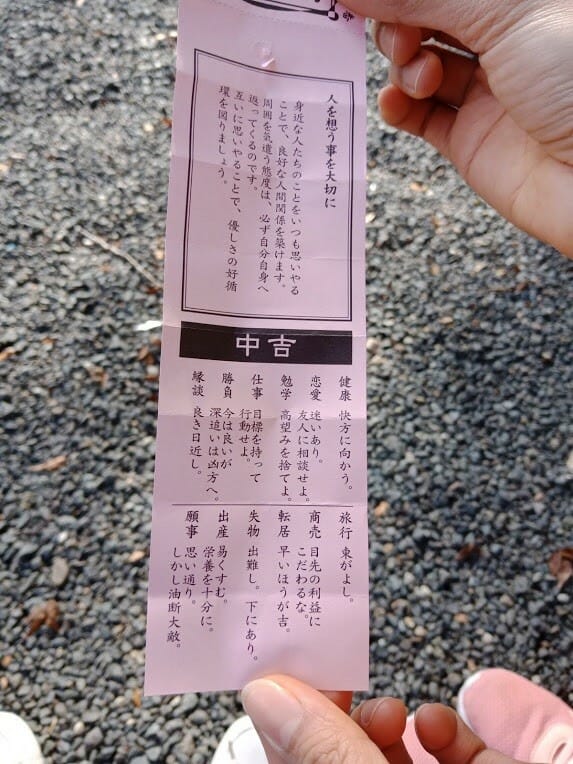 人を想う事を大切に
身近な人たちのことをいつも思いやる
ことで、良好な人間関係を築けます。
周囲を気遣う態度は、必ず自分自身へ
返ってくるのです。
互いに思いやることで、優しさの好循
環を図りましょう。
中吉
健康 快方に向かう。
恋愛 迷いあり。
友人に相談せよ。
勉学 高望みを捨てよ。
仕事 目標を持って
行動せよ。
勝負 今は良いが
深追いは凶方へ。
縁談 良き日近し。
旅行 東がよし。
商売 目先の利益に
こだわるな。
転居 早いほうが吉。
失物 出難し。下にあり。
出産 易くすむ。
栄養を十分に。
願事 思い通り。
しかし油断大敵。